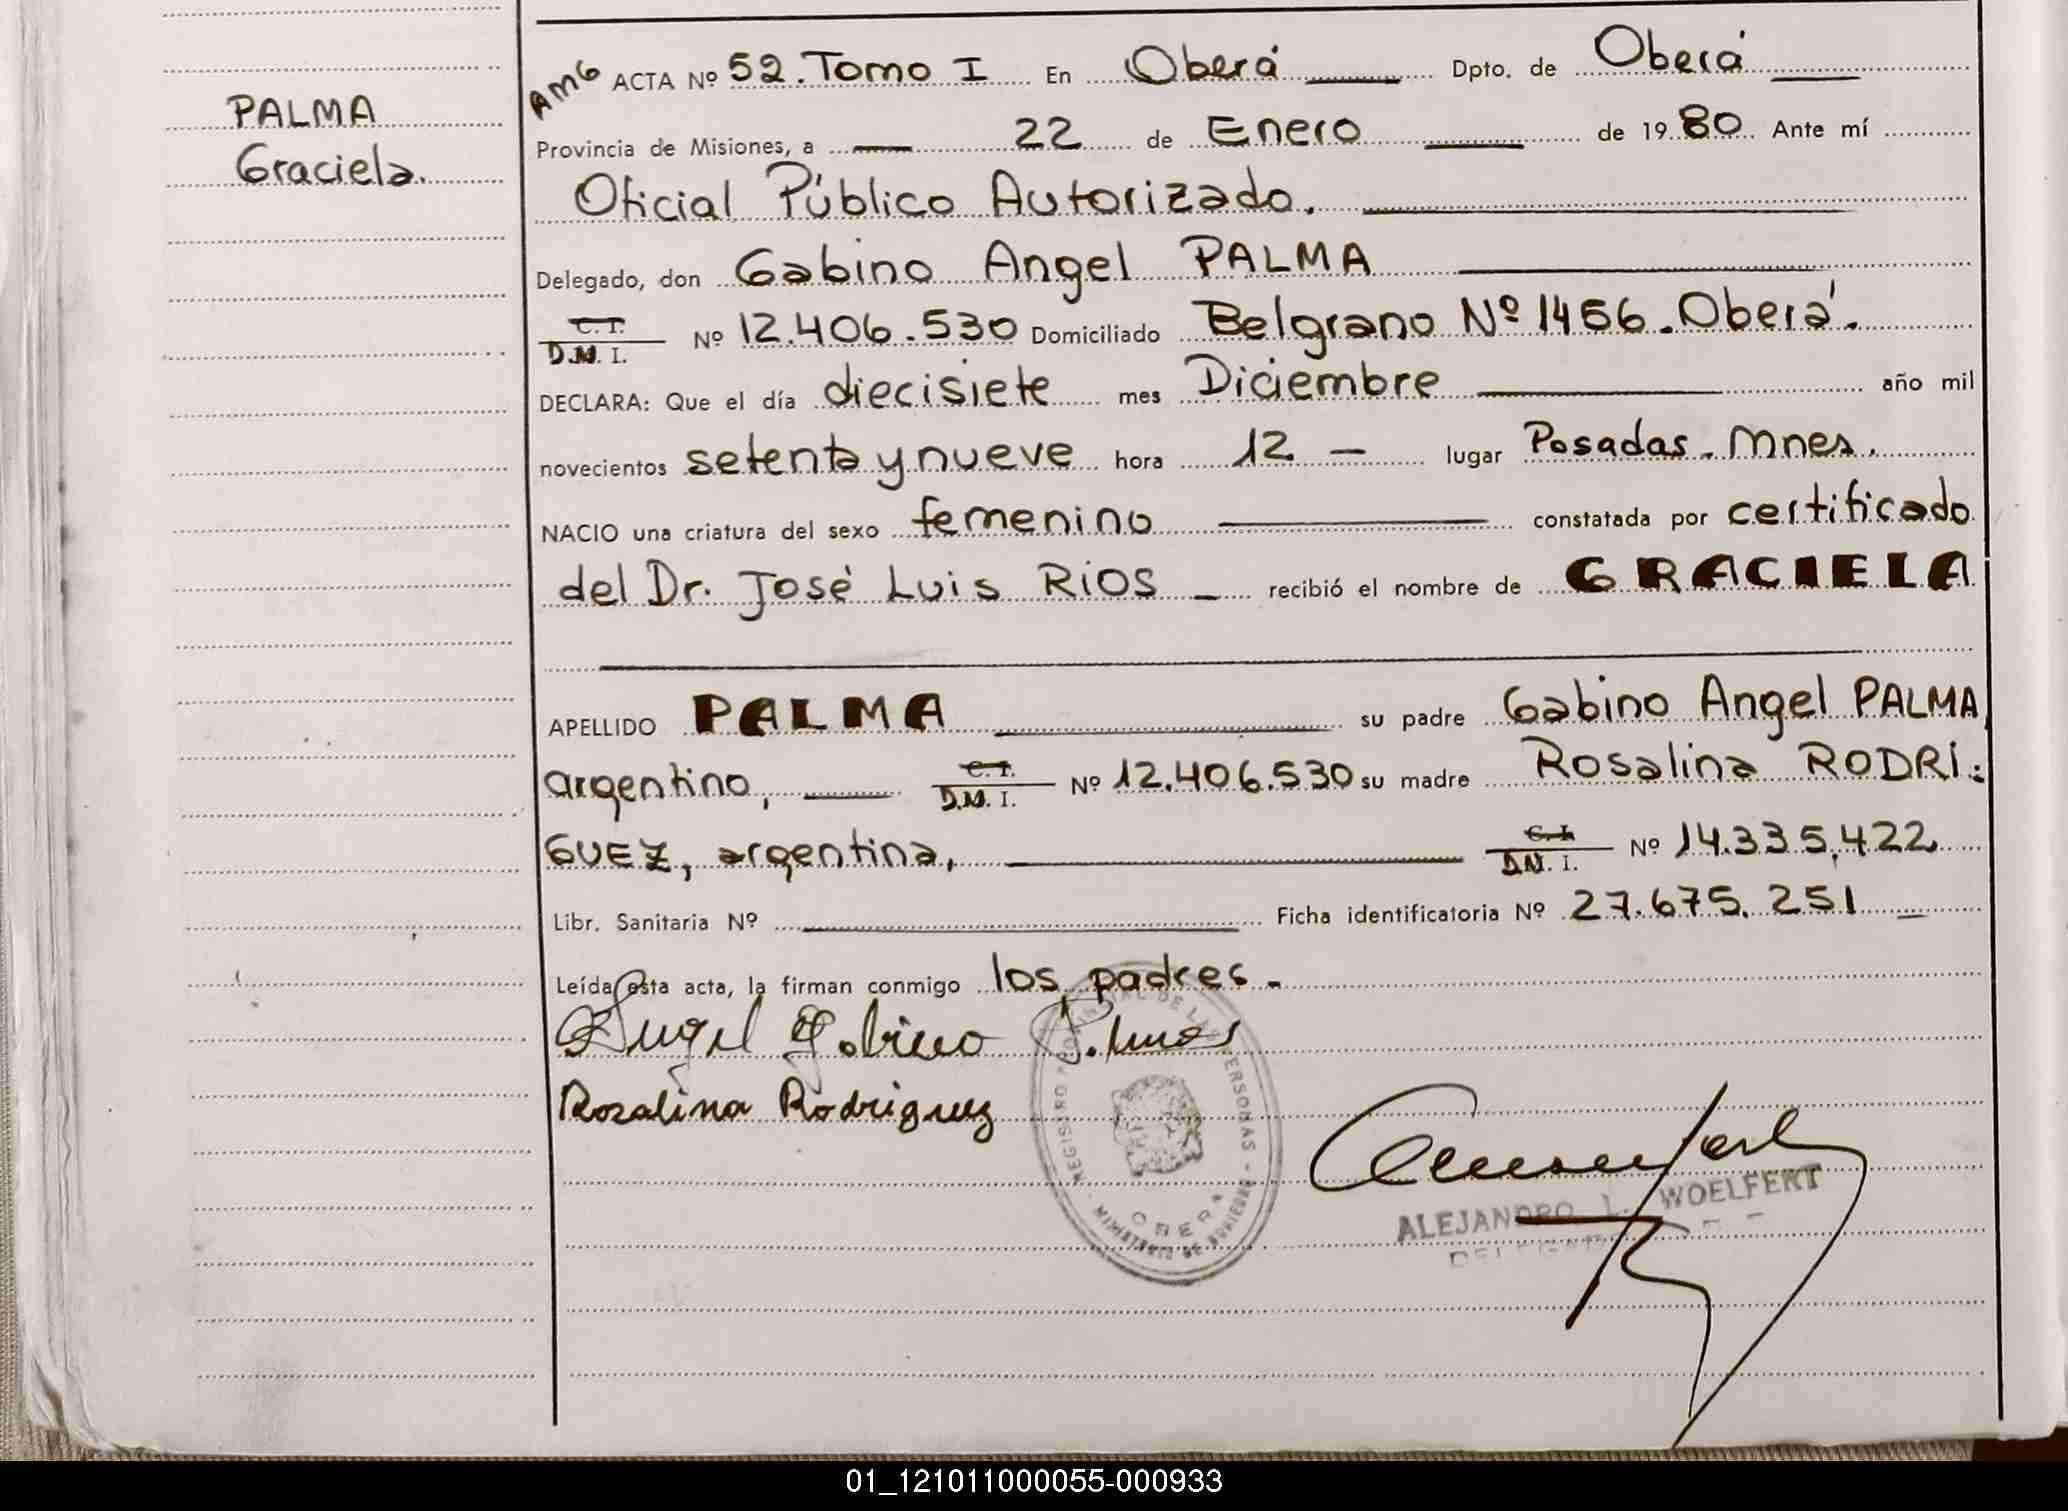 PALMA
Graciela.
AMG ACTA Nº 52. Tomo I En Oberá Dpto. de Oberá
Provincia de Misiones, a 22 de Enero de 1980 Ante mí
Oficial Público Autorizado.
Delegado, don Gabino Angel PALMA
C. I.
D.N. I. Nº 12.406.530 Domiciliado Belgrano Nº 1456. Oberá.
DECLARA: Que el día diecisiete mes Diciembre año mil
novecientos setenta y nueve hora 12 — lugar Posadas. Mnes.
NACIO una criatura del sexo femenino constatada por certificado
del Dr. José Luis RIOS recibió el nombre de GRACIELA
APELLIDO PALMA su padre Gabino Angel PALMA,
argentino, C. I.
D.N. I. Nº 12.406.530 su madre Rosalina RODRI:
GUEZ, argentina, C. I.
D.N. I. Nº 14.335.422
Libr. Sanitaria Nº Ficha identificatoria Nº 27.675.251
Leída esta acta, la firman conmigo los padres.-
Angel Gabino Palma
Rosalina Rodriguez
REGISTRO PROVINCIAL DE LAS PERSONAS - MINISTERIO DE GOBIERNO -
OBERA
ALEJANDRO L. WOELFERT
01_121011000055-000933